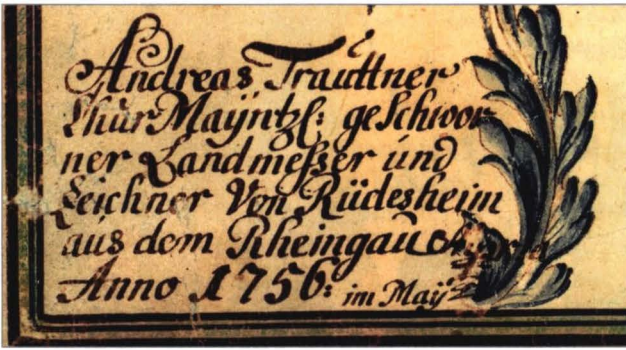 Andreas Trauttner
ChurMaÿntzl: geschwor
ner Landmeßer und
Zeichner Von Rüdesheim
aus dem Rheingau
Anno 1756: im Maÿ